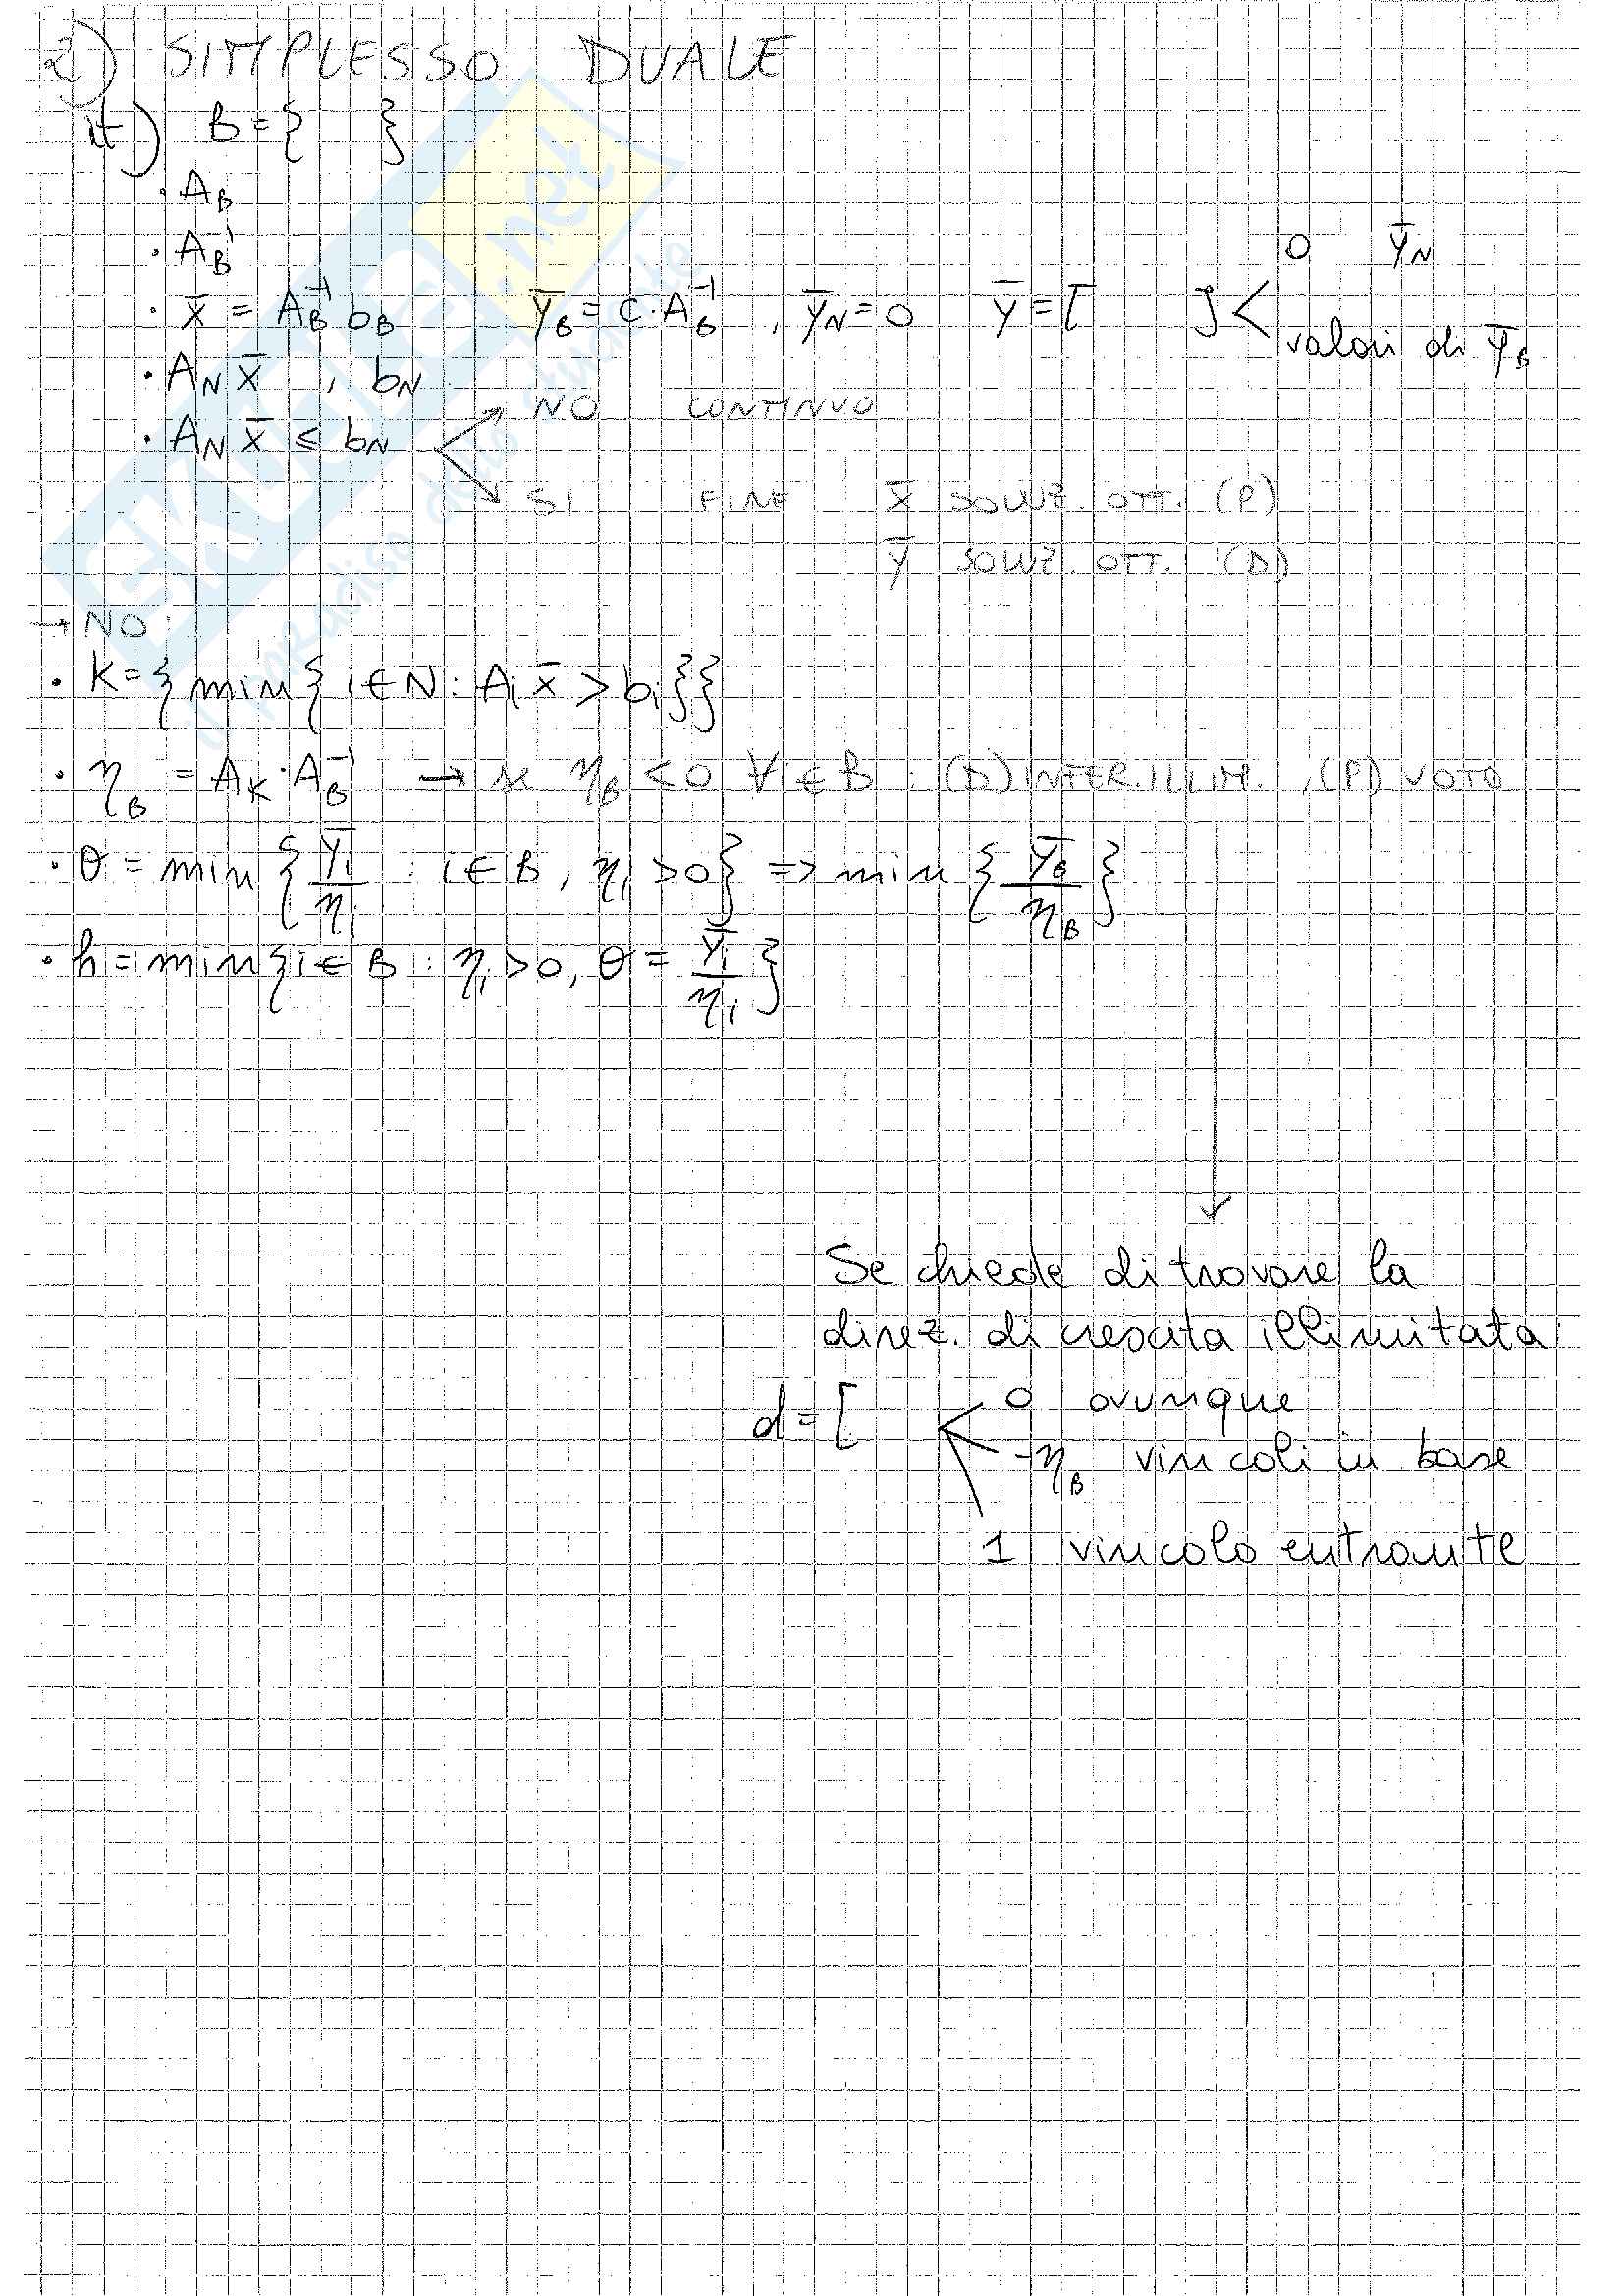 2) SIMPLESSO DUALE
it) B={ }
· A_B
· A_B^-1
· x̄ = A_B^-1 b_B   ȳ_B = c·A_B^-1 , ȳ_N = 0   ȳ = [ ] < 0 ȳ_N
valori di ȳ_B
· A_N x̄ , b_N
· A_N x̄ ≤ b_N
NO CONTINUO
SI FINE x̄ SOLUZ. OTT. (P)
ȳ SOLUZ. OTT. (D)
→ NO:
· K={min{i∈N: A_i x̄ > b_i}}
· η_B = A_K·A_B^-1 → se η_B < 0 ∀i∈B : (D) INFER. ILLIM. , (P) VUOTO
· θ = min {ȳ_i/η_i : i∈B, η_i>0} => min {ȳ_B/η_B}
· h = min{i∈B : η_i>0, θ = ȳ_i/η_i}
Se chiede di trovare la
direz. di crescita illimitata
d=[ 0 ovunque
-η_B vincoli in base
1 vincolo entrante